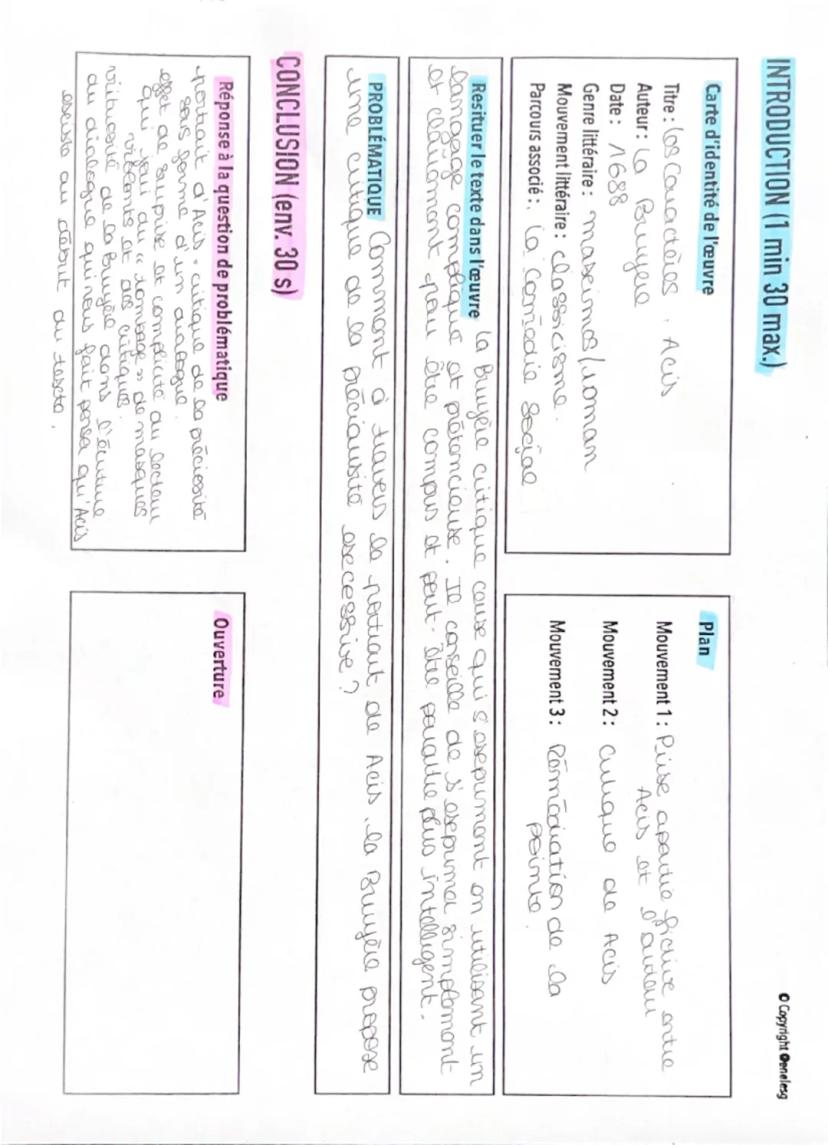 © Copyright @enelesg
INTRODUCTION (1 min 30 max.)
Carte d'identité de l'œuvre
Titre : Les Caractères, Acis
Auteur : La Bruyère
Date : 1688
Genre littéraire : maximes/roman
Mouvement littéraire : classicisme.
Parcours associé : La Comédie Sociale
Plan
Mouvement 1 : Prise apartie fictive entre
Acis et l'auteur
Mouvement 2 : Critique de Acis
Mouvement 3 : Remédiation de la
pointe.
Resituer le texte dans l'œuvre La Bruyère critique ceux qui s'expriment en utilisant un
langage compliqué et prétencieuse. Il conseille de s'exprimer simplement
et clairement pour être compris et peut-être paraître plus intelligent.
PROBLÉMATIQUE Comment à travers le portrait de Acis, La Bruyère propose
une critique de la préciausité excecessive ?
CONCLUSION (env. 30 s)
Réponse à la question de problématique
portrait d'Acis = critique de la préciosité
sous forme d'un dialogue.
effet de surprise et complicité du lecteur
qui joui du " tombage " de masques
et des critiques.
virtuosité de La Bruyère dans l'écriture
du dialogue qui nous fait penser qu'Acis
existe au début du texte.
Ouverture